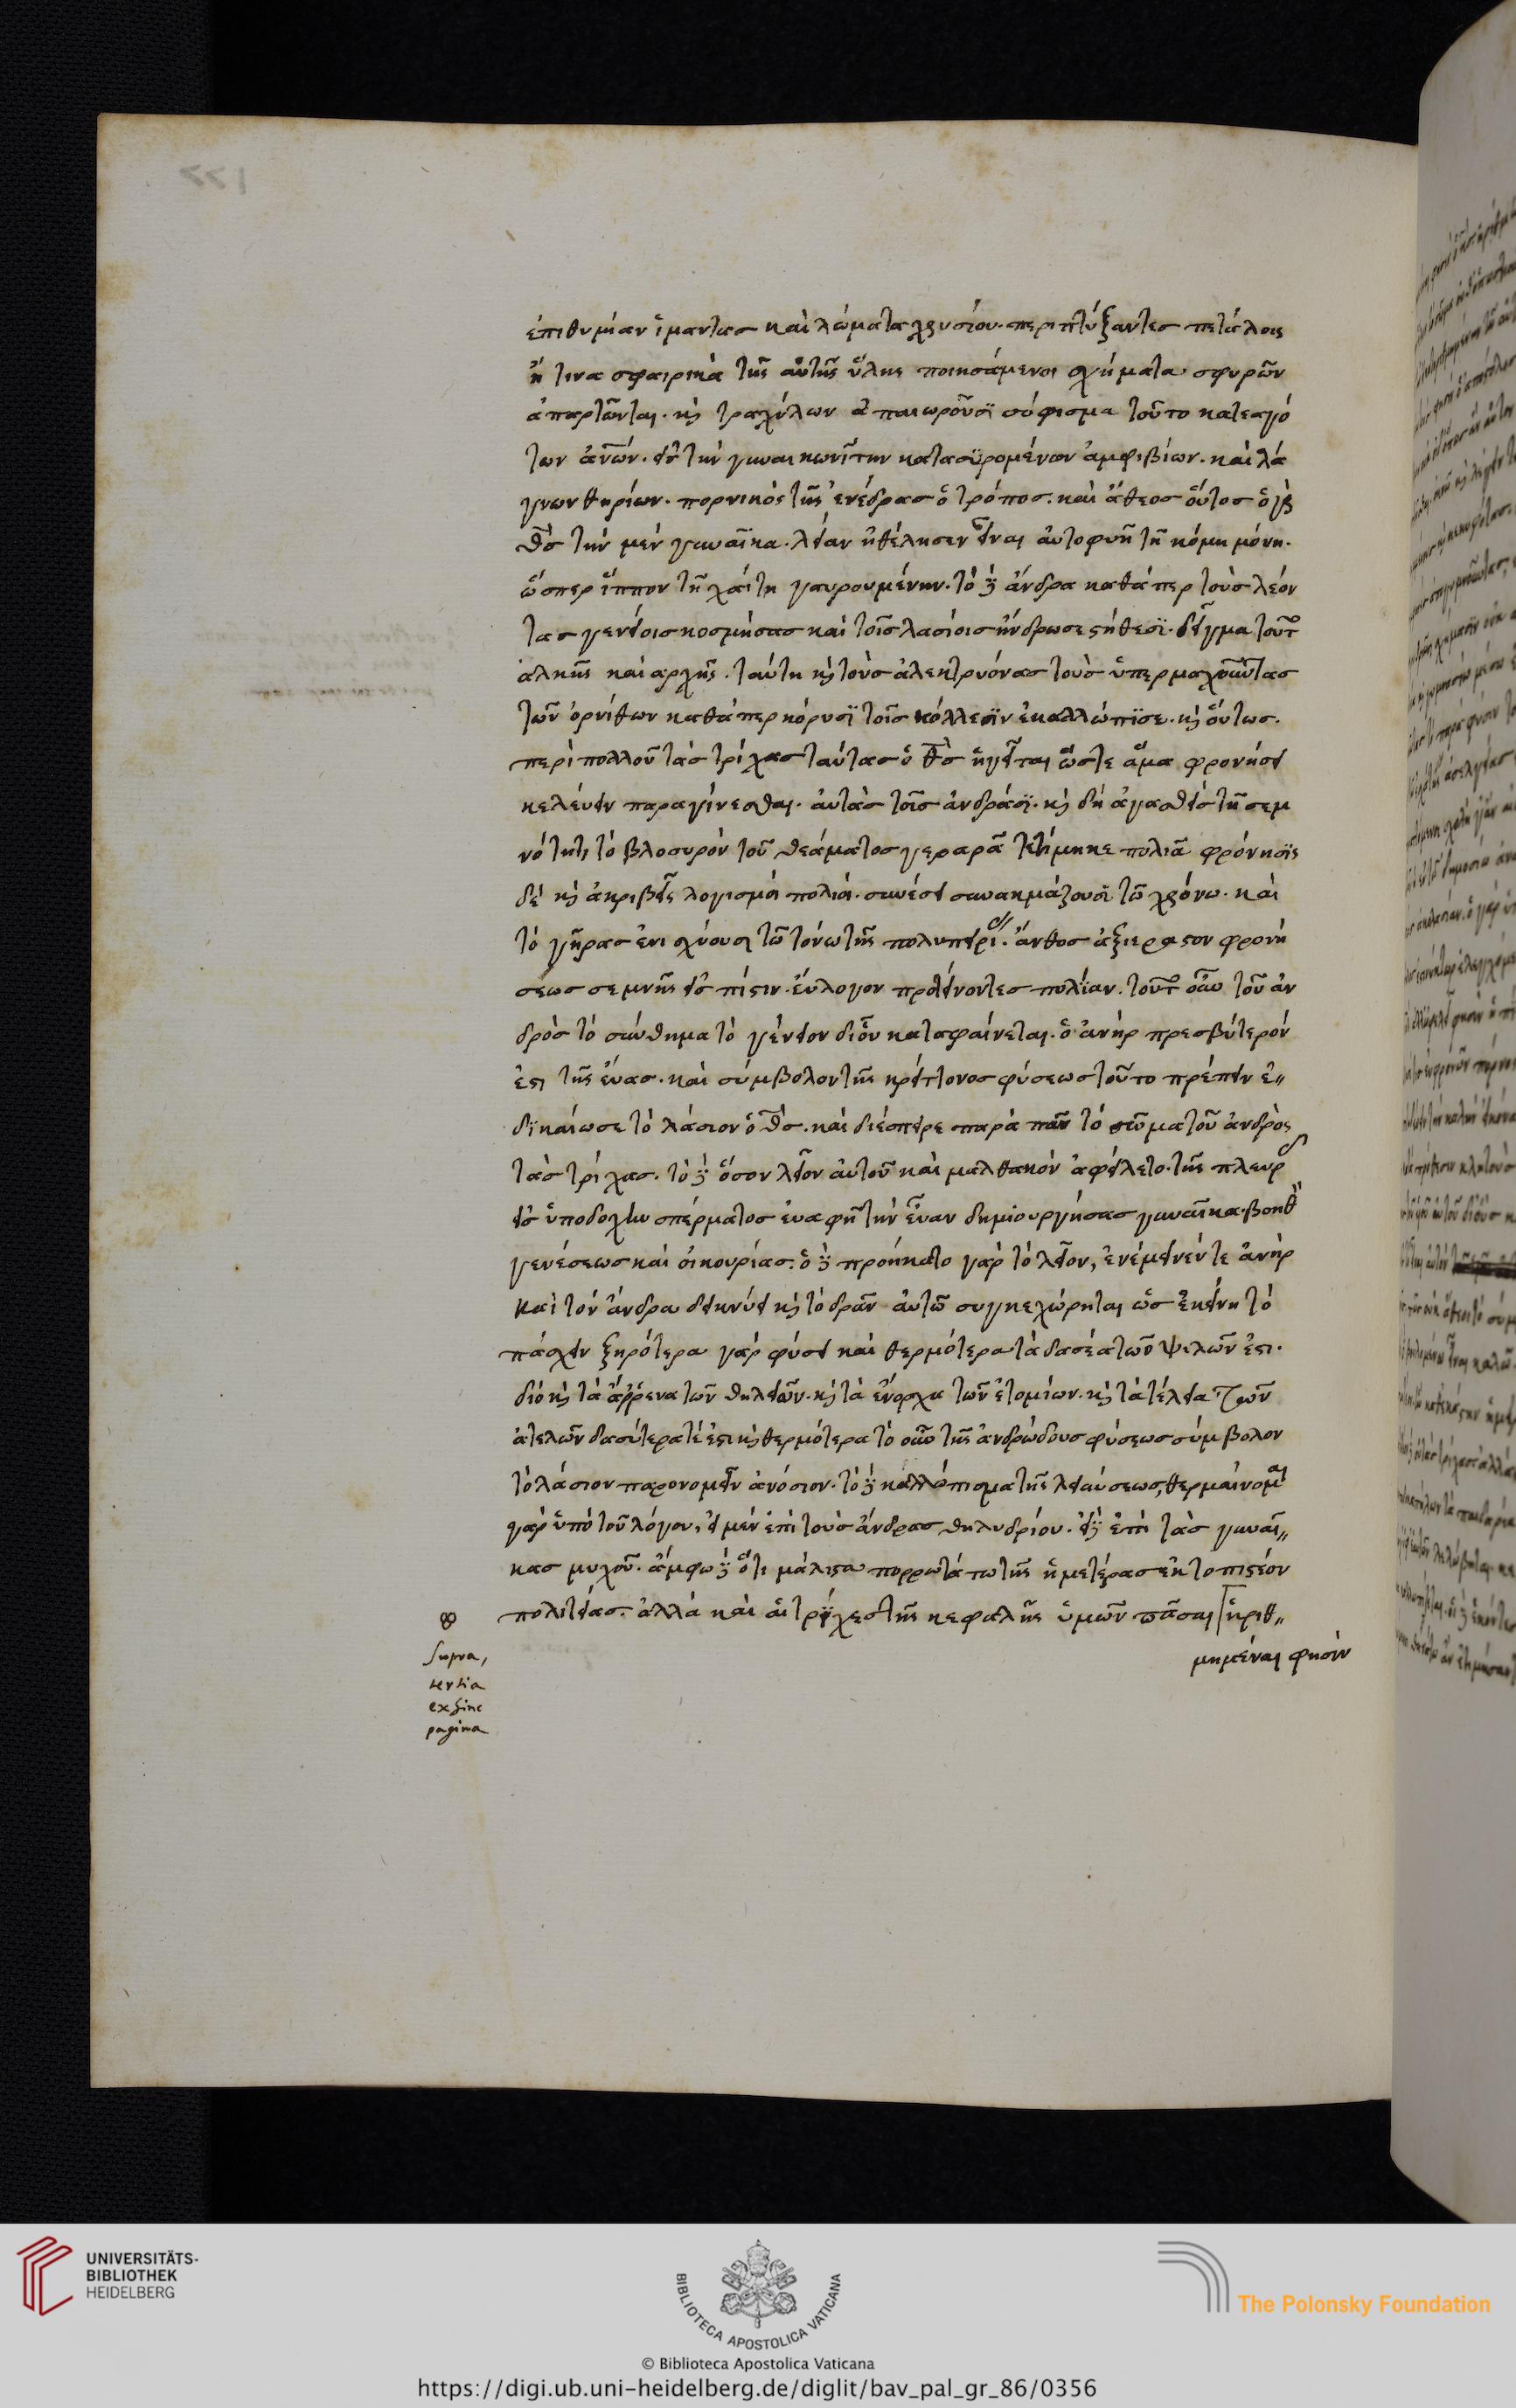 ἐπιθυμίαν ἱμάντας καὶ λώματα χρυσίου περιπτύξαντες πετάλοις
ἤ τινα σφαιρικὰ τῆς αὐτῆς ὕλης ποιησάμενοι σχήματα σφυρῶν
ἀπαρτῶνται. κ̀ τραχήλων ἀπαιωροῦσϊ σόφισμα τοῦτο κατεαγό
των ἀν̅ων. εἰς τὴν γυναικωνῖτιν κατασϋρομένων ἀμφιβίων. καὶ λά
γνων θηρίων. πορνικὸς τῆς ἐνέδρας ὁ τρόπος. καὶ ἄθεος οὗτος ὁ γὰρ
θ̅ς τὴν μὲν γυναῖκα. λείαν ἠθέλησεν εἶναι αὐτοφυῆ τῆ κόμη μόνη.
ὥσπερ ἵππον τῆ χαίτη γαυρουμένην. τὸν δὲ ἄνδρα καθάπερ τοὺς λέον
τας γενείοις κοσμήσας καὶ τοῖς λασίοις ἤνδρωσε στήθεσϊ. δεῖγμα τοῦτ
ἀλκῆς καὶ ἀρχῆς. ταύτη κ̀ τοὺς ἀλεκτρυόνας τοὺς ὑπερμαχοῦντας
τῶν ὀρνίθων καθάπερ κόρυσϊ τοῖς κάλλεσϊν ἐκαλλώπϊσε. κ̀ οὕτως.
περὶ πολλοῦ τὰς τρίχας ταύτας ὁ θ̅ς ἡγεῖται ὥστε ἅμα φρονήσει
κελεύειν παραγίνεσθαι. αὐτὰς τοῖς ἀνδράσϊ. κ̀ δὴ ἀγασθεὶς τῆ σεμ
νότητι τὸ βλοσυρὸν τοῦ θεάματος γεραρᾶ τετίμηκε πολιᾶ φρόνησϊς
δὲ κ̀ ἀκριβεῖς λογισμοὶ πολιοὶ. συνέσει συνακμάζουσϊ τῶ χρόνω. καὶ
τὸ γῆρας ἐνισχύουσι τῶ τόνω τῆς πολυπειρί. ἄνθος ἀξιέραστον φρονή
σεως σεμνῆς εἰς πίστιν. εὔλογον προτείνοντες πολϊαν. τοῦτ οὖν τοῦ ἀν
δρὸς τὸ σύνθημα τὸ γένειον δι οὗ καταφαίνεται. ὁ ἀνὴρ πρεσβύτερόν
ἐστι τῆς εὔας. καὶ σύμβολον τῆς κρείττονος φύσεως τοῦτο πρέπειν ἐ〃
δϊκαίωσε τὸ λάσιον ὁ θ̅ς. καὶ διέσπειρε παρὰ πᾶν τὸ σῶμα τοῦ ἀνδρὸς
τὰς τρίχας. τὸ δὲ ὅσον λεῖον αὐτοῦ καὶ μαλθακὸν ἀφείλετο. τῆς πλευρ
εἰς ὑποδοχὴν σπέρματος εὐαφῆ τὴν εὖαν δημϊουργήσας γυναῖκα. βοηθ
γενέσεως καὶ οἰκουρίας. ὁ δὲ προήκατο γὰρ τὸ λεῖον, ἐνέμεινέν τε ἀνὴρ
καὶ τὸν ἄνδρα δεικνύει κ̀ τὸ δρᾶν αὐτῶ συγκεχώρηται ὡς ἐκείνη τὸ
πάσχειν ξηρότερα γὰρ φύσει καὶ θερμότερα τὰ δασέα τῶν ψιλῶν ἐστι.
διὸ κ̀ τὰ ἄῤῥενα τῶν θηλειῶν. κ̀ τὰ ἔνορχα τῶν ἐτομίων. κ̀ τὰ τέλεια τῶν
ἀτελῶν δασύτερα τέ ἐστι κ̀ θερμότερα τὸ οὖν τῆς ἀνδρώδους φύσεως σύμβολον
τὸ λάσιον παρανομεῖν ἀνόσιον. τὸ δὲ καλλώπισμα τῆς λειαύσεως, θερμαίνομαι
γὰρ ὑπὸ τοῦ λόγου, εἰ μὲν ἐπὶ τοὺς ἄνδρας θηλυδρίου. εἰ δὲ ἐπὶ τὰς γυναῖ〃
κας μυχοῦ. ἄμφω δὲ ὅτι μάλιστα πορρωτάτω τῆς ἡμετέρας ἐκτοπιστέον
πολιτείας. ἀλλὰ καὶ αἱ τρίχες τῆς κεφαλῆς ὑμῶν πᾶσαι [ἠριθ〃
μημέναι φησὶν
supra,
tertia
ex hinc
pagina
177
UNIVERSITÄTS-
BIBLIOTHEK
HEIDELBERG
BIBLIOTECA APOSTOLICA VATICANA
The Polonsky Foundation
© Biblioteca Apostolica Vaticana
https://digi.ub.uni-heidelberg.de/diglit/bav_pal_gr_86/0356